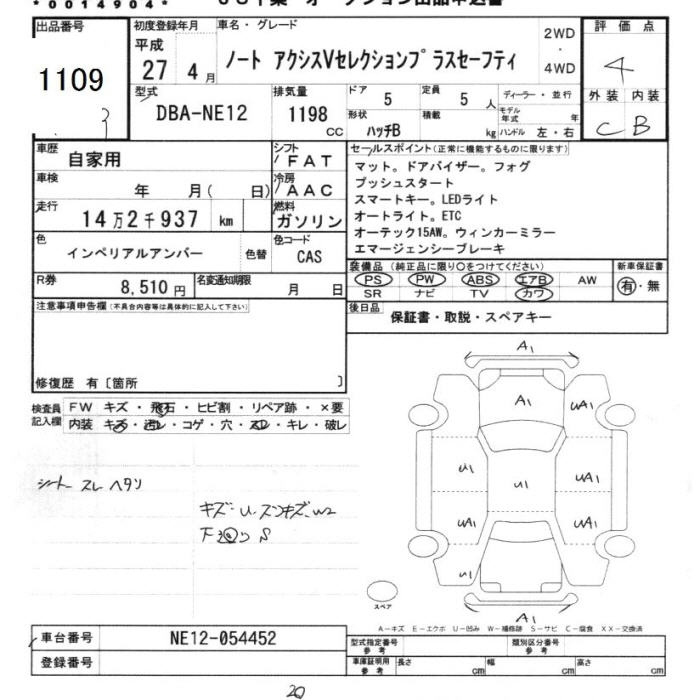 *0014904*
出品番号 初度登録年月 車名・グレード 2WD・4WD 評価点
1109 平成 27 4月 ノート アクシスVセレクションプラスセーフティ 4
型式 排気量 ドア 定員 ディーラー・並行 外装 内装
DBA-NE12 1198 CC 5 5人 モデル年式 年 C B
3
形状 積載 ハッチB kg ハンドル 左・右
車歴 自家用 シフト FAT
車検 年 月( 日) 冷房 AAC
走行 14万2千937 km 燃料 ガソリン
色 インペリアルアンバー 色替 色コード CAS
R券 8,510円 名変通知期限 月 日
セールスポイント(正常に機能するものに限ります)
マット。ドアバイザー。フォグ
プッシュスタート
スマートキー。LEDライト
オートライト。ETC
オーテック15AW。ウィンカーミラー
エマージェンシーブレーキ
装備品(純正品に限り○をつけてください) 新車保証書
PS PW ABS エアB AW 有・無
SR ナビ TV カワ
後日品 保証書・取説・スペアキー
注意事項申告欄(不具合内容等は具体的に記入して下さい)
修復歴 有〔箇所 〕
検査員記入欄 FW キズ・飛石・ヒビ割・リペア跡・×要
内装 キズ・汚レ・コゲ・穴・スレ・キレ・破レ
シート スレ ヘタリ
キズ・U スンキズ、W2
S
A1
A1 UA1
U1 U1 UA1
UA1 UA1
U1
A1
スペア
A-キズ E-エクボ U-凹み W-補修跡 S-サビ C-腐食 XX-交換済
車台番号 NE12-054452 型式指定番号 参考 類別区分番号 参考
登録番号 車庫証明用 参考 長さ cm 幅 cm 高さ cm
20